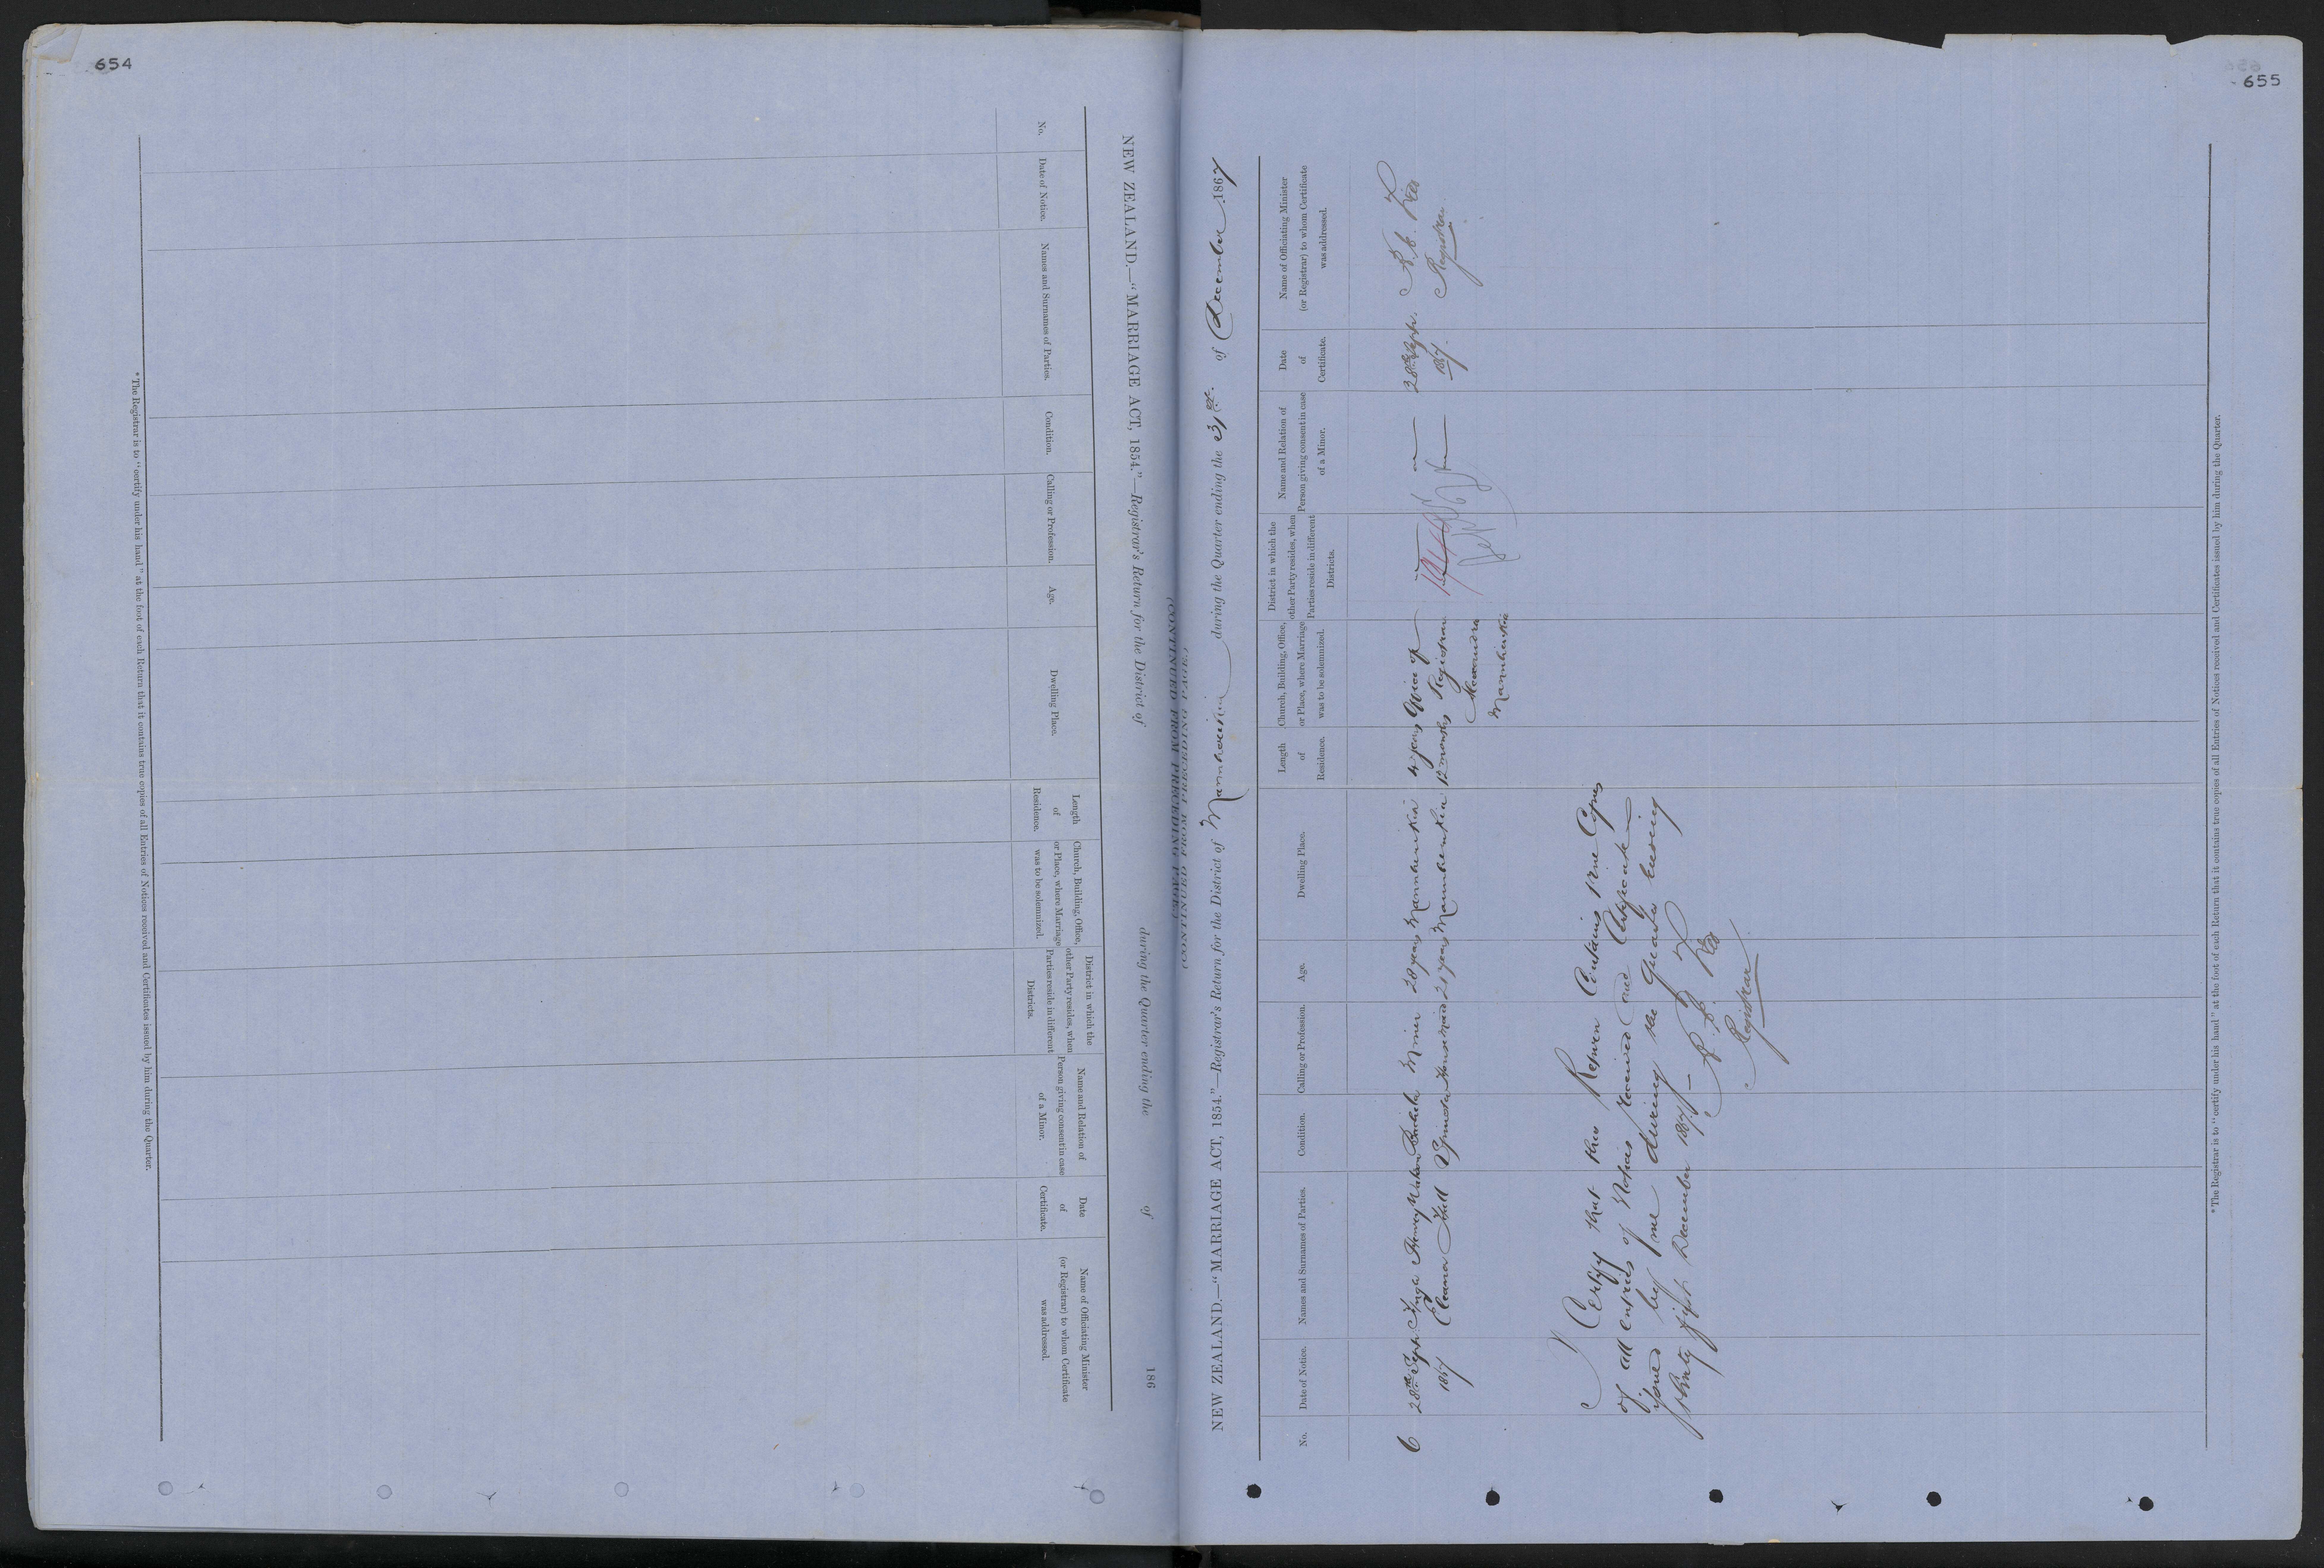 654
NEW ZEALAND.—"MARRIAGE ACT, 1854."—Registrar's Return for the District of during the Quarter ending the of 186
(CONTINUED FROM PRECEDING PAGE.)
No.
Date of Notice.
Names and Surnames of Parties.
Condition.
Calling or Profession.
Age.
Dwelling Place.
Length
of
Residence.
Church, Building, Office,
or Place, where Marriage
was to be solemnized.
District in which the
other Party resides, when
Parties reside in different
Districts.
Name and Relation of
Person giving consent in case
of a Minor.
Date
of
Certificate.
Name of Officiating Minister
(or Registrar) to whom Certificate
was addressed.
* The Registrar is to "certify under his hand" at the foot of each Return that it contains true copies of all Entries of Notices received and Certificates issued by him during the Quarter.
655
NEW ZEALAND.—"MARRIAGE ACT, 1854."—Registrar's Return for the District of Manuherikia during the Quarter ending the 31st of December 1867
No.
Date of Notice.
Names and Surnames of Parties.
Condition.
Calling or Profession.
Age.
Dwelling Place.
Length
of
Residence.
Church, Building, Office,
or Place, where Marriage
was to be solemnized.
District in which the
other Party resides, when
Parties reside in different
Districts.
Name and Relation of
Person giving consent in case
of a Minor.
Date
of
Certificate.
Name of Officiating Minister
(or Registrar) to whom Certificate
was addressed.
6
28th Sept.
1867
Henry
Eleanor Hull
Bachelor
Spinster
Miner
Housemaid
28 years
21 years
Manuherikia
Manuherikia
4 years
12 months
Office of
Registrar
Alexandra
Manuherikia
28th Sept.
1867.
Registrar
I Certify that this Return Contains true Copies
of all entries of Notices received and Certificates
issued by me during the Quarter ending
thirty first December 1867.—
Registrar
* The Registrar is to "certify under his hand" at the foot of each Return that it contains true copies of all Entries of Notices received and Certificates issued by him during the Quarter.